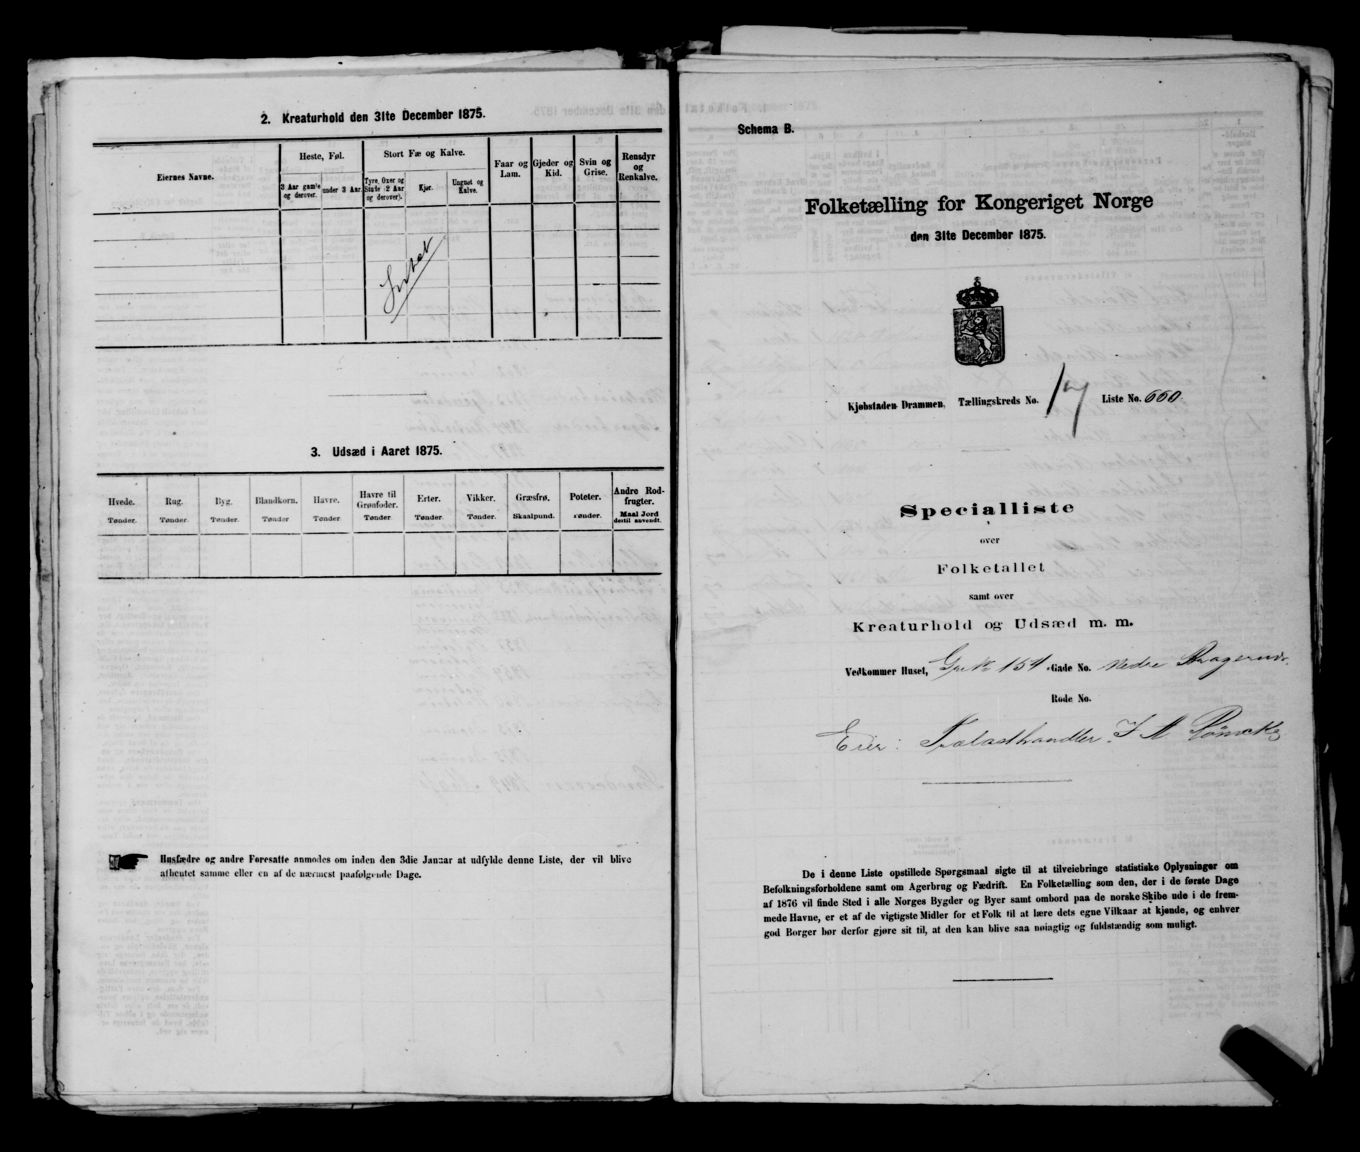 2. Kreaturhold den 31te December 1875.
Eiernes Navne.
Heste, Føl.
3 Aar gamle og derover.
under 3 Aar.
Stort Fæ og Kalve.
Tyre, Oxer og Stude (2 Aar og derover).
Kjør.
Ungnet og Kalve.
Faar og Lam.
Gjeder og Kid.
Svin og Grise.
Rensdyr og Renkalve.
Intet
3. Udsæd i Aaret 1875.
Hvede. Rug. Byg. Blandkorn. Havre. Havre til Grønfoder. Erter. Vikker. Græsfrø. Poteter. Andre Rodfrugter.
Tønder. Tønder. Tønder. Tønder Tønder Tønder Tønder. Tønder. Skaalpund. Tønder. Maal Jord dertil anvendt.
Husfædre og andre Foresatte anmodes om inden den 3die Januar at udfylde denne Liste, der vil blive
afhentet samme eller en af de nærmest paafølgende Dage.
Schema B.
Folketælling for Kongeriget Norge
den 31te December 1875.
Kjøbstaden Drammen. Tællingskreds No. 17 Liste No. 660.
Specialliste
over
Folketallet
samt over
Kreaturhold og Udsæd m. m.
Vedkommer Huset, 154 Gade No. Nedre Bragernes
Rode No.
Eier: Trælasthandler
De i denne Liste opstillede Spørgsmaal sigte til at tilveiebringe statistiske Oplysninger om
Befolkningsforholdene samt om Agerbrug og Fædrift. En Folketælling som den, der i de første Dage
af 1876 vil finde Sted i alle Norges Bygder og Byer samt ombord paa de norske Skibe ude i de frem-
mede Havne, er et af de vigtigste Midler for et Folk til at lære dets egne Vilkaar at kjende, og enhver
god Borger bør derfor gjøre sit til, at den kan blive saa nøiagtig og fuldstændig som muligt.